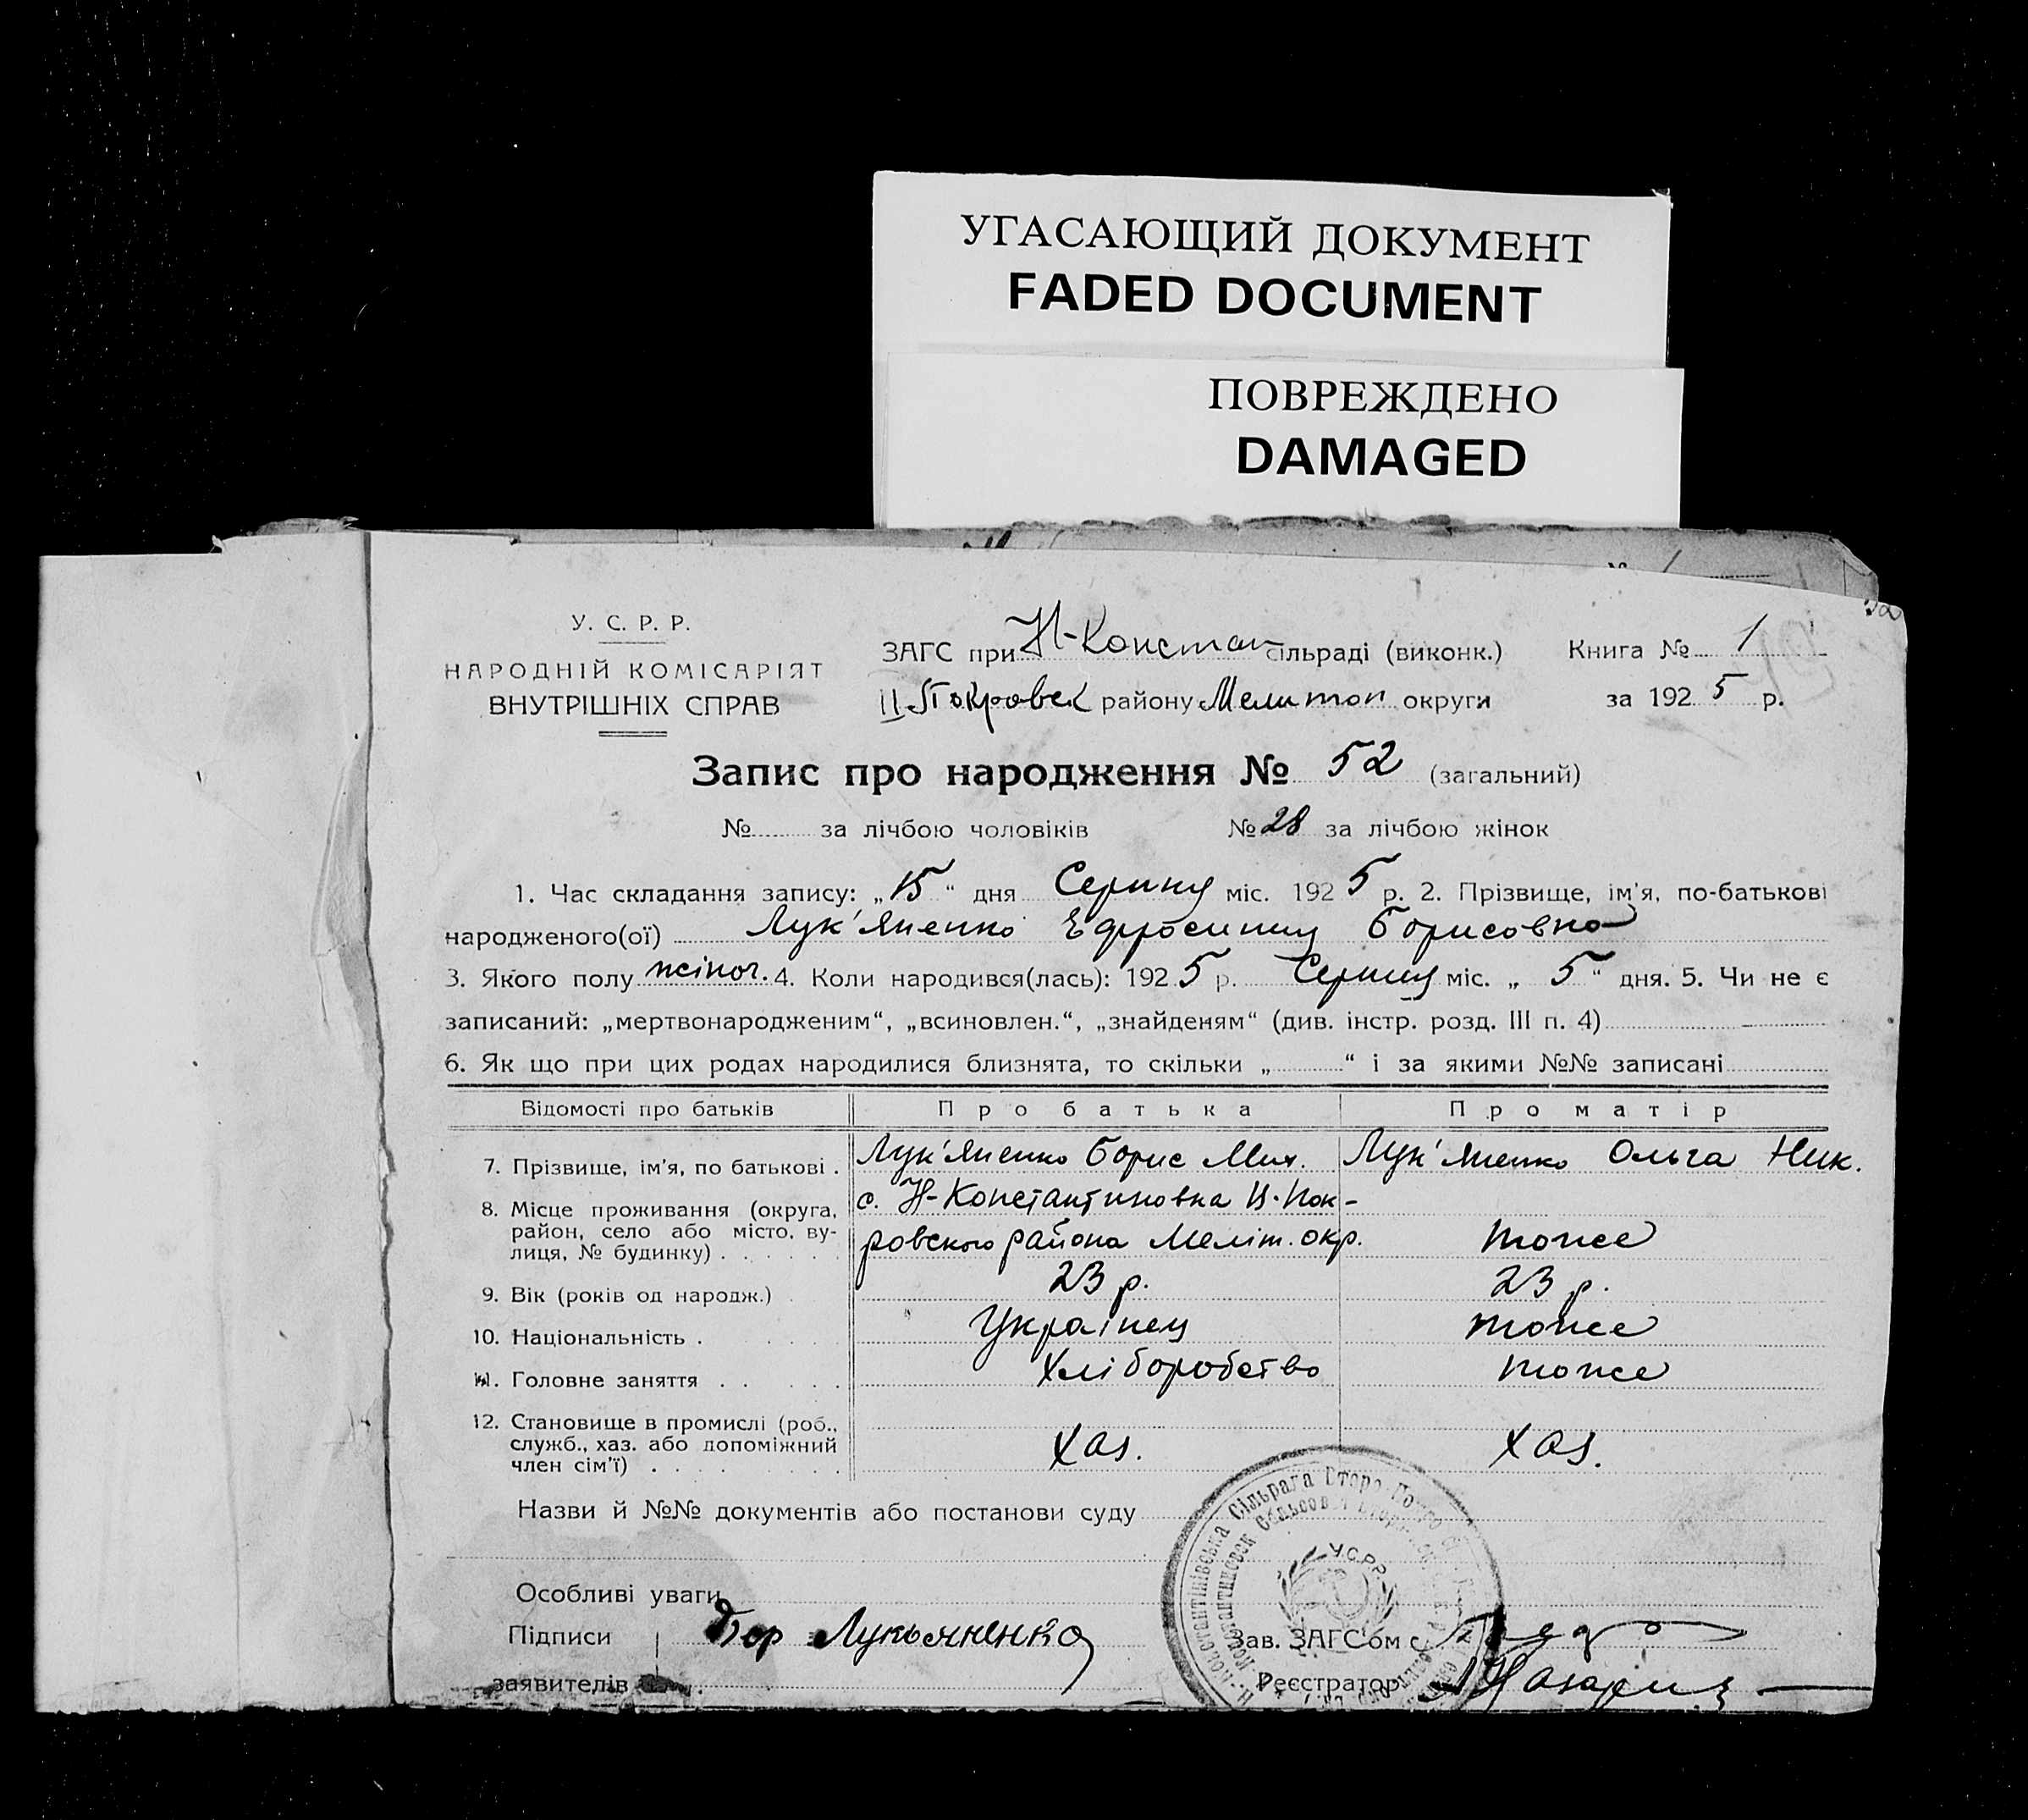 УГАСАЮЩИЙ ДОКУМЕНТ
FADED DOCUMENT
ПОВРЕЖДЕНО
DAMAGED
У. С. Р. Р.
НАРОДНІЙ КОМІСАРІЯТ
ВНУТРІШНІХ СПРАВ
ЗАГС при Н-Констан сільраді (виконк.)
II Покровск району Мелитоп округи
Книга № 1
за 1925 р.
Запис про народження № 52 (загальний)
№ за лічбою чоловіків № 28 за лічбою жінок
1. Час складання запису: „15“ дня Серпня міс. 1925 р. 2. Прізвище, ім'я, по-батькові
народженого(ої) Лук'яненко Ефросиния Борисовна
3. Якого полу жіноч. 4. Коли народився(лась): 1925 р. Серпня міс. „5“ дня. 5. Чи не є
записаний: „мертвонародженим“, „всиновлен.“, „знайденям“ (див. інстр. розд. III п. 4)
6. Як що при цих родах народилися близнята, то скільки „ “ і за якими №№ записані
Відомості про батьків Про батька Про матір
7. Прізвище, ім'я, по батькові . Лук'яненко Борис Мих. Лук'яненко Ольга Ник.
8. Місце проживання (округа, район, село або місто, ву-лиця, № будинку) с. Н-Константиновка II-Пок-
ровского района Меліт. окр. тоже
9. Вік (років од народж.) 23 р. 23 р.
10. Національність . Українец тоже
11. Головне заняття . Хліборобство тоже
12. Становище в промислі (роб., служб., хаз. або допоміжний член сім'ї) . Хаз. Хаз.
Назви й №№ документів або постанови суду
Особливі уваги
Підписи Бор Лукьяненко
заявителів
У.С.Р.Р.
Зав. ЗАГС'ом
Реєстратор